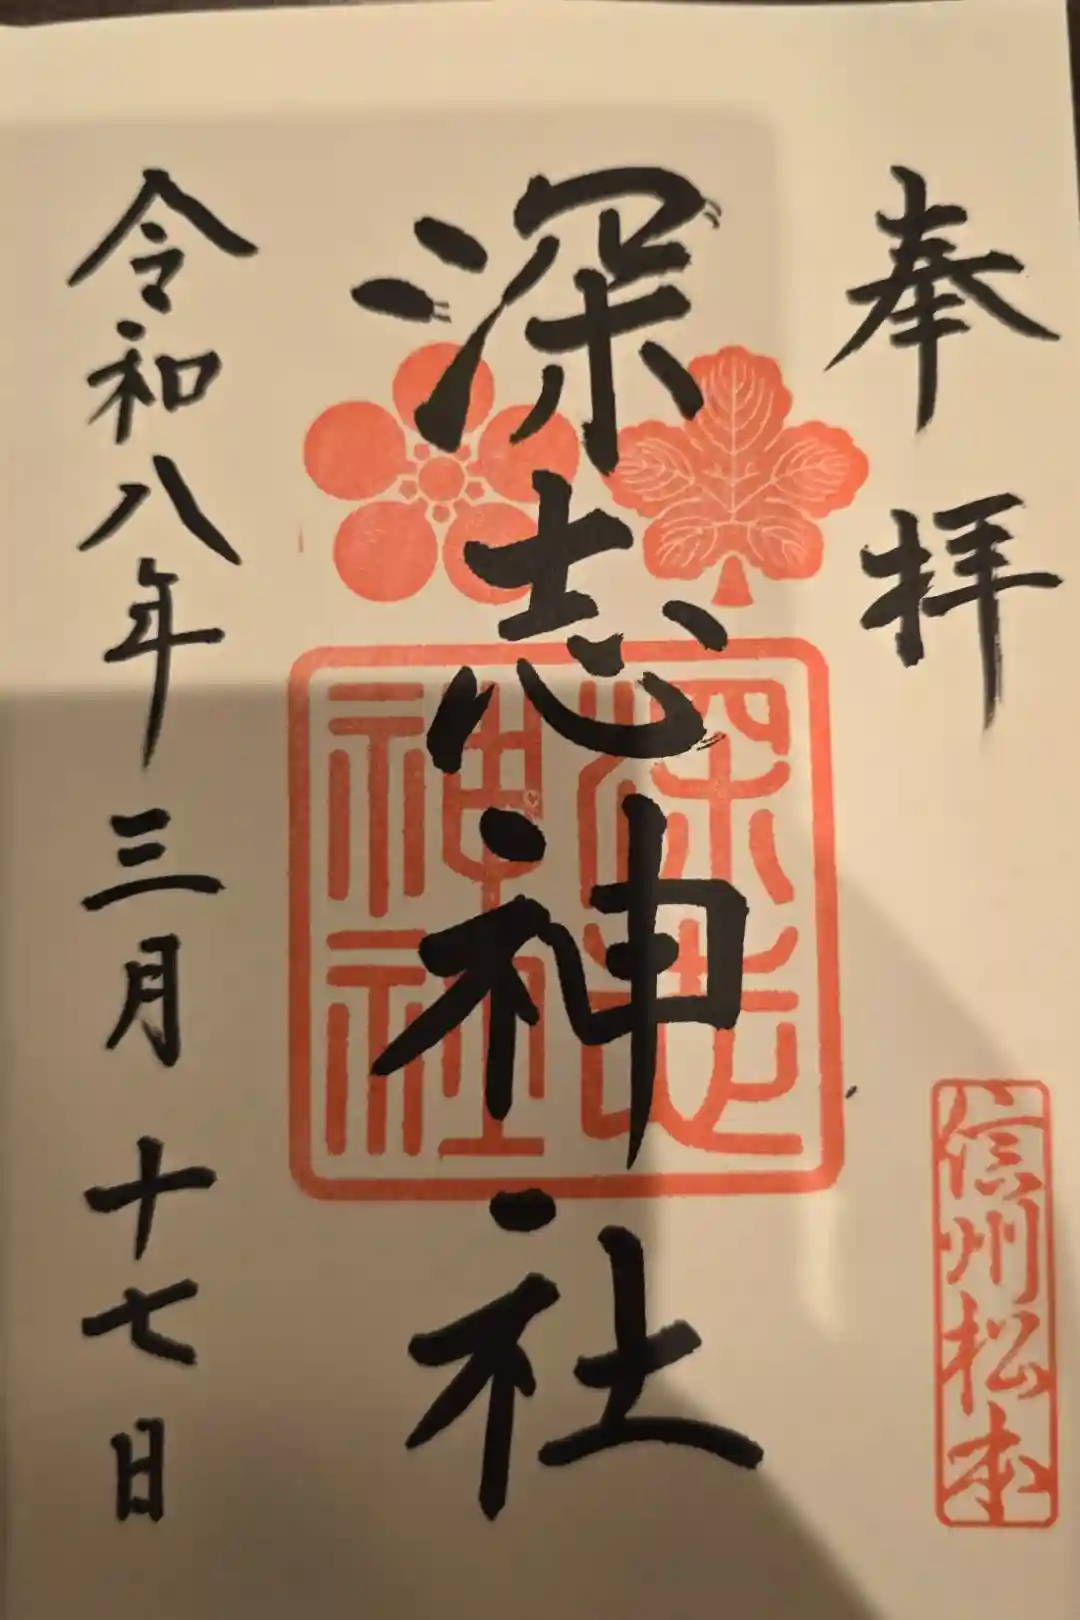 奉拝
信州松本
深志神社
深志神社
令和八年三月十七日